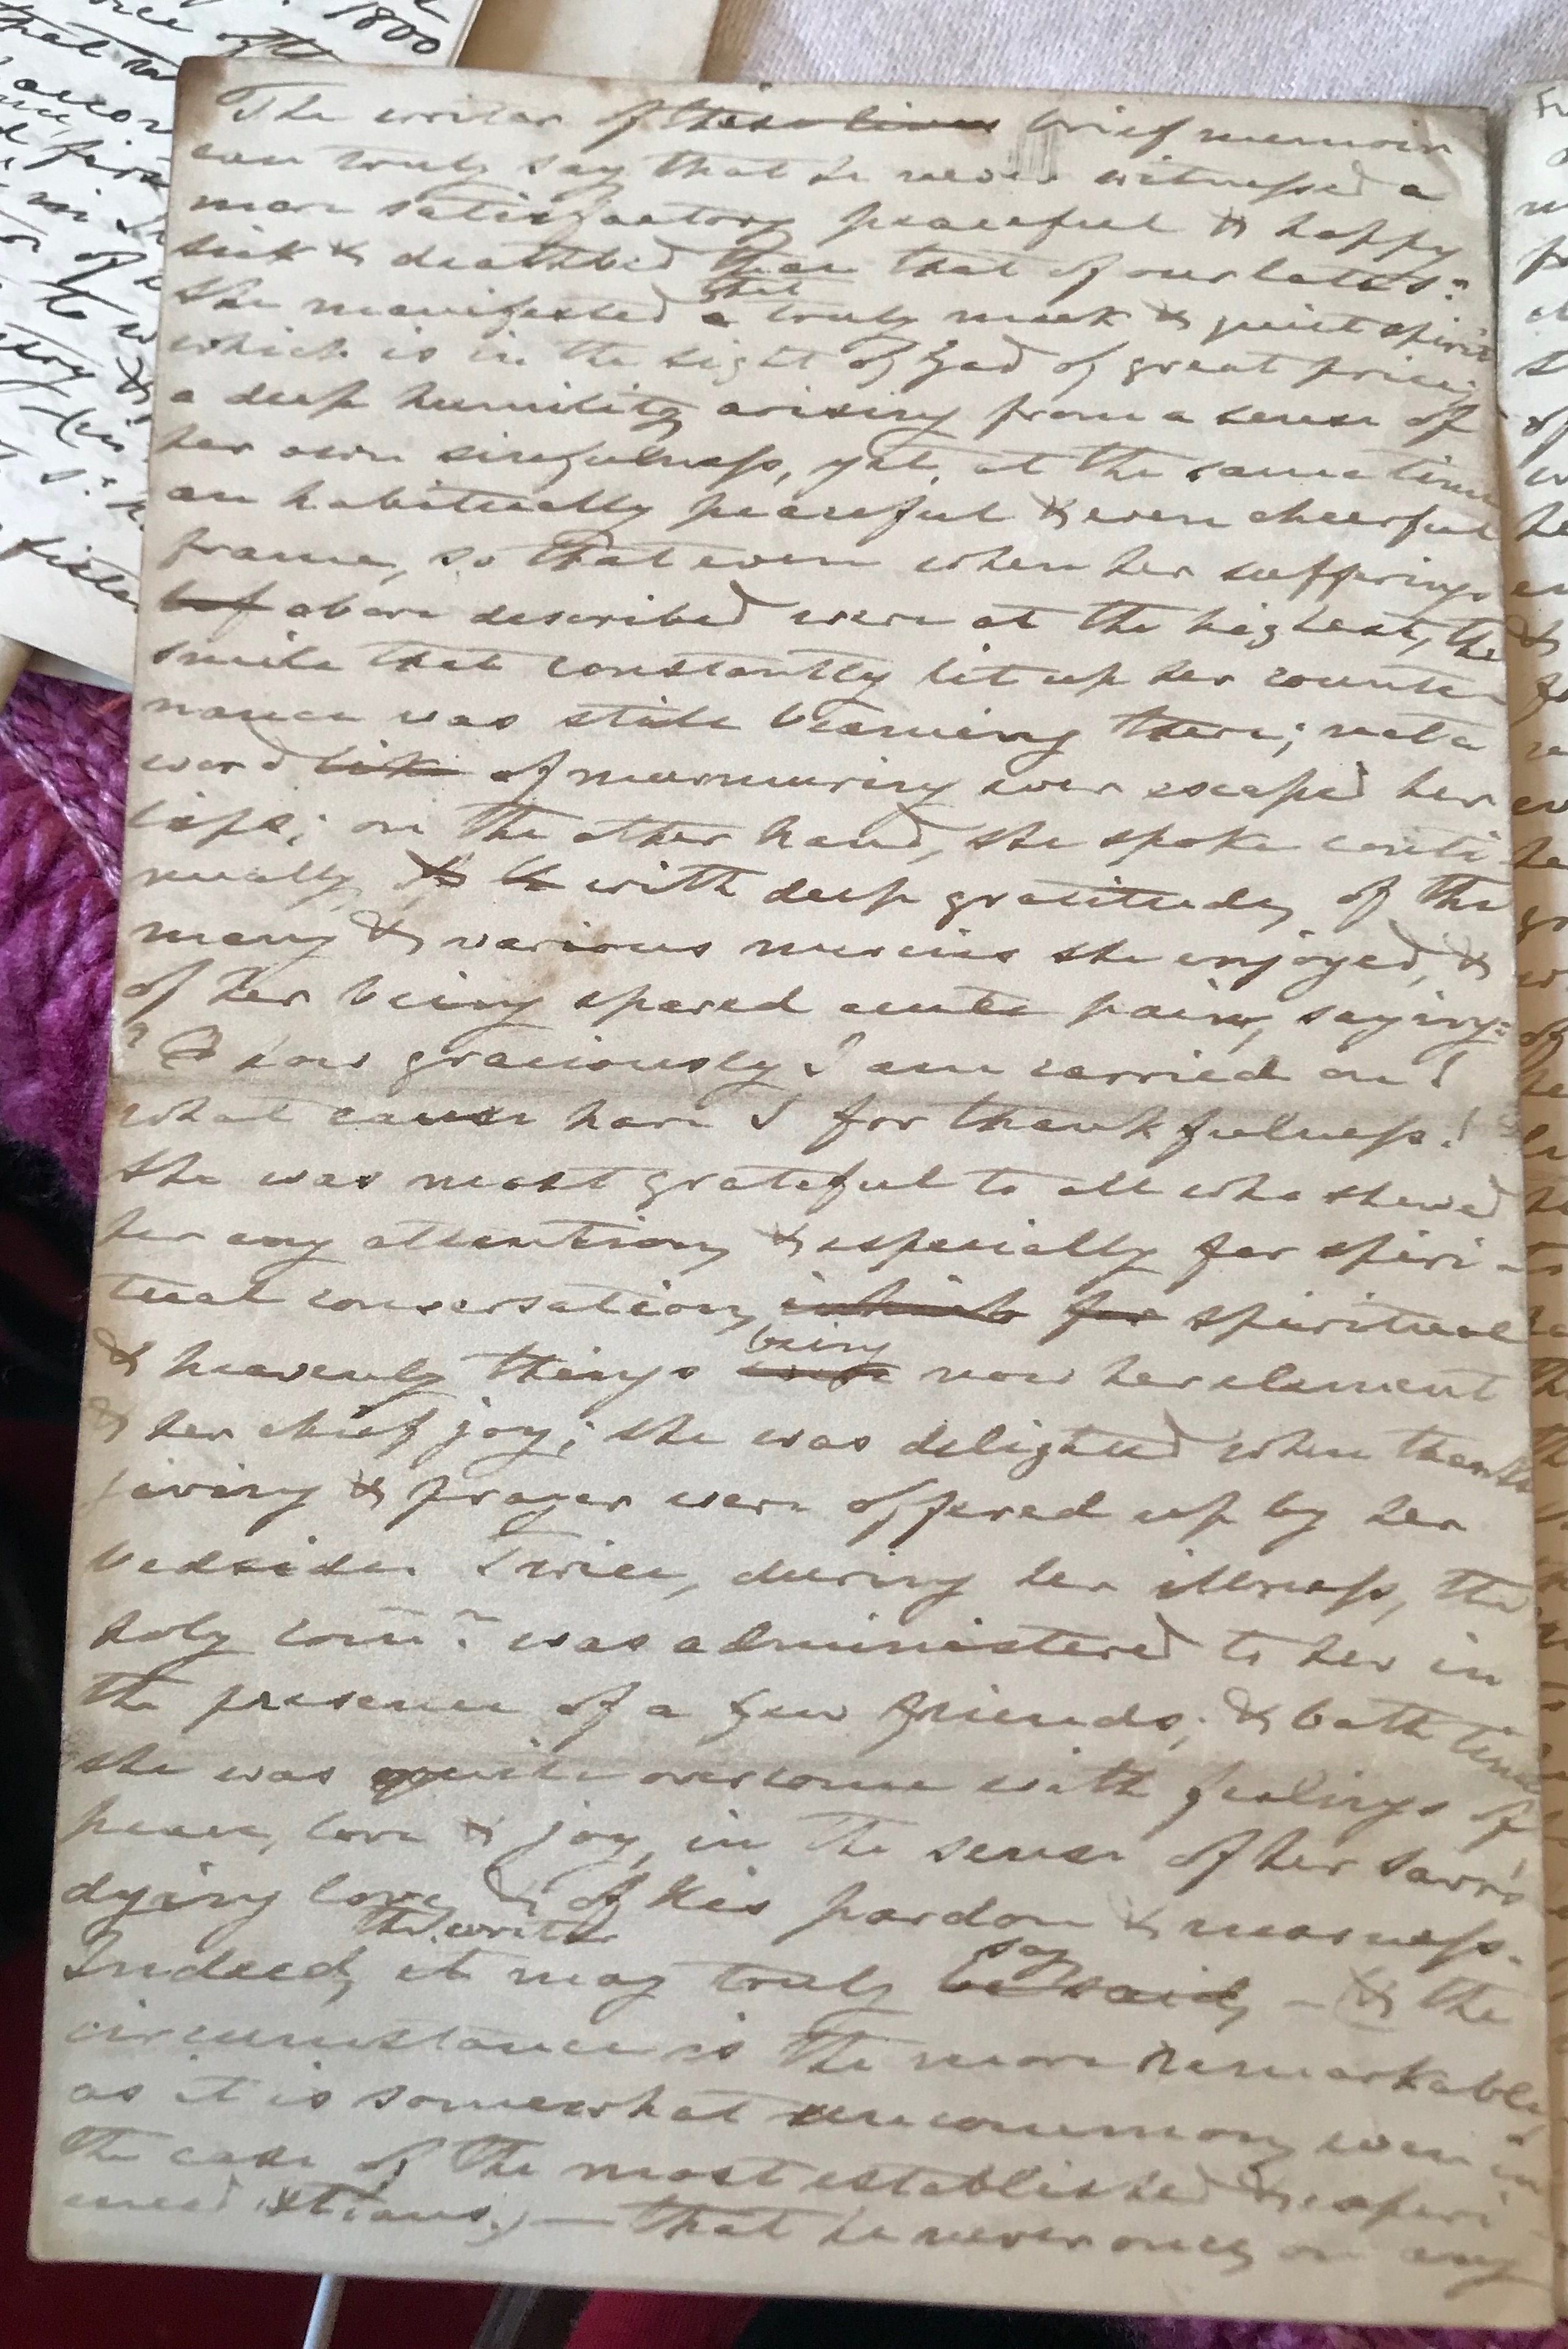 The writer of these lines brief memoir
can truly say that he never witnessed a
more satisfactory peaceful & happy
sick & deathbed than that of our late s:
She manifested a that truly meek & quiet spirit
which is in the sight of God of great price;
a deep humility arising from a sense of
her own sinfulness, yet, at the same time
an habitually peaceful & even cheerful
frame, so that even when her sufferings
bef above described were at the highest, the
smile that constantly lit up her counte
nance was still beaming there; not a
word like of murmuring ever escaped her
lips; on the other hand, she spoke conti
nually, & with deep gratitude, of the
many & various mercies she enjoyed, &
of her being spared acute pain, saying:
"O how graciously I am carried on!
what cause have I for thankfulness!"
She was most grateful to all who shewed
her any attention, & especially for spiri-
tual conversation, which for spiritual
& heavenly things were being now her element
& her chief joy; she was delighted when thanks
giving & prayer were offered up by her
bedside. Twice, during her illness, the
holy comn: was administered to her in
the presence of a few friends; & both times
she was quite overcome with feelings of
peace, love & joy, in the sense of her Savr's
dying love, & of His pardon & nearness.
Indeed, it the writer may truly be said, say - (& the
circumstance is the more remarkable,
as it is somewhat uncommon, even in
the case of the most established & experi-
enced Xtians,) — that he never once, on any
1800